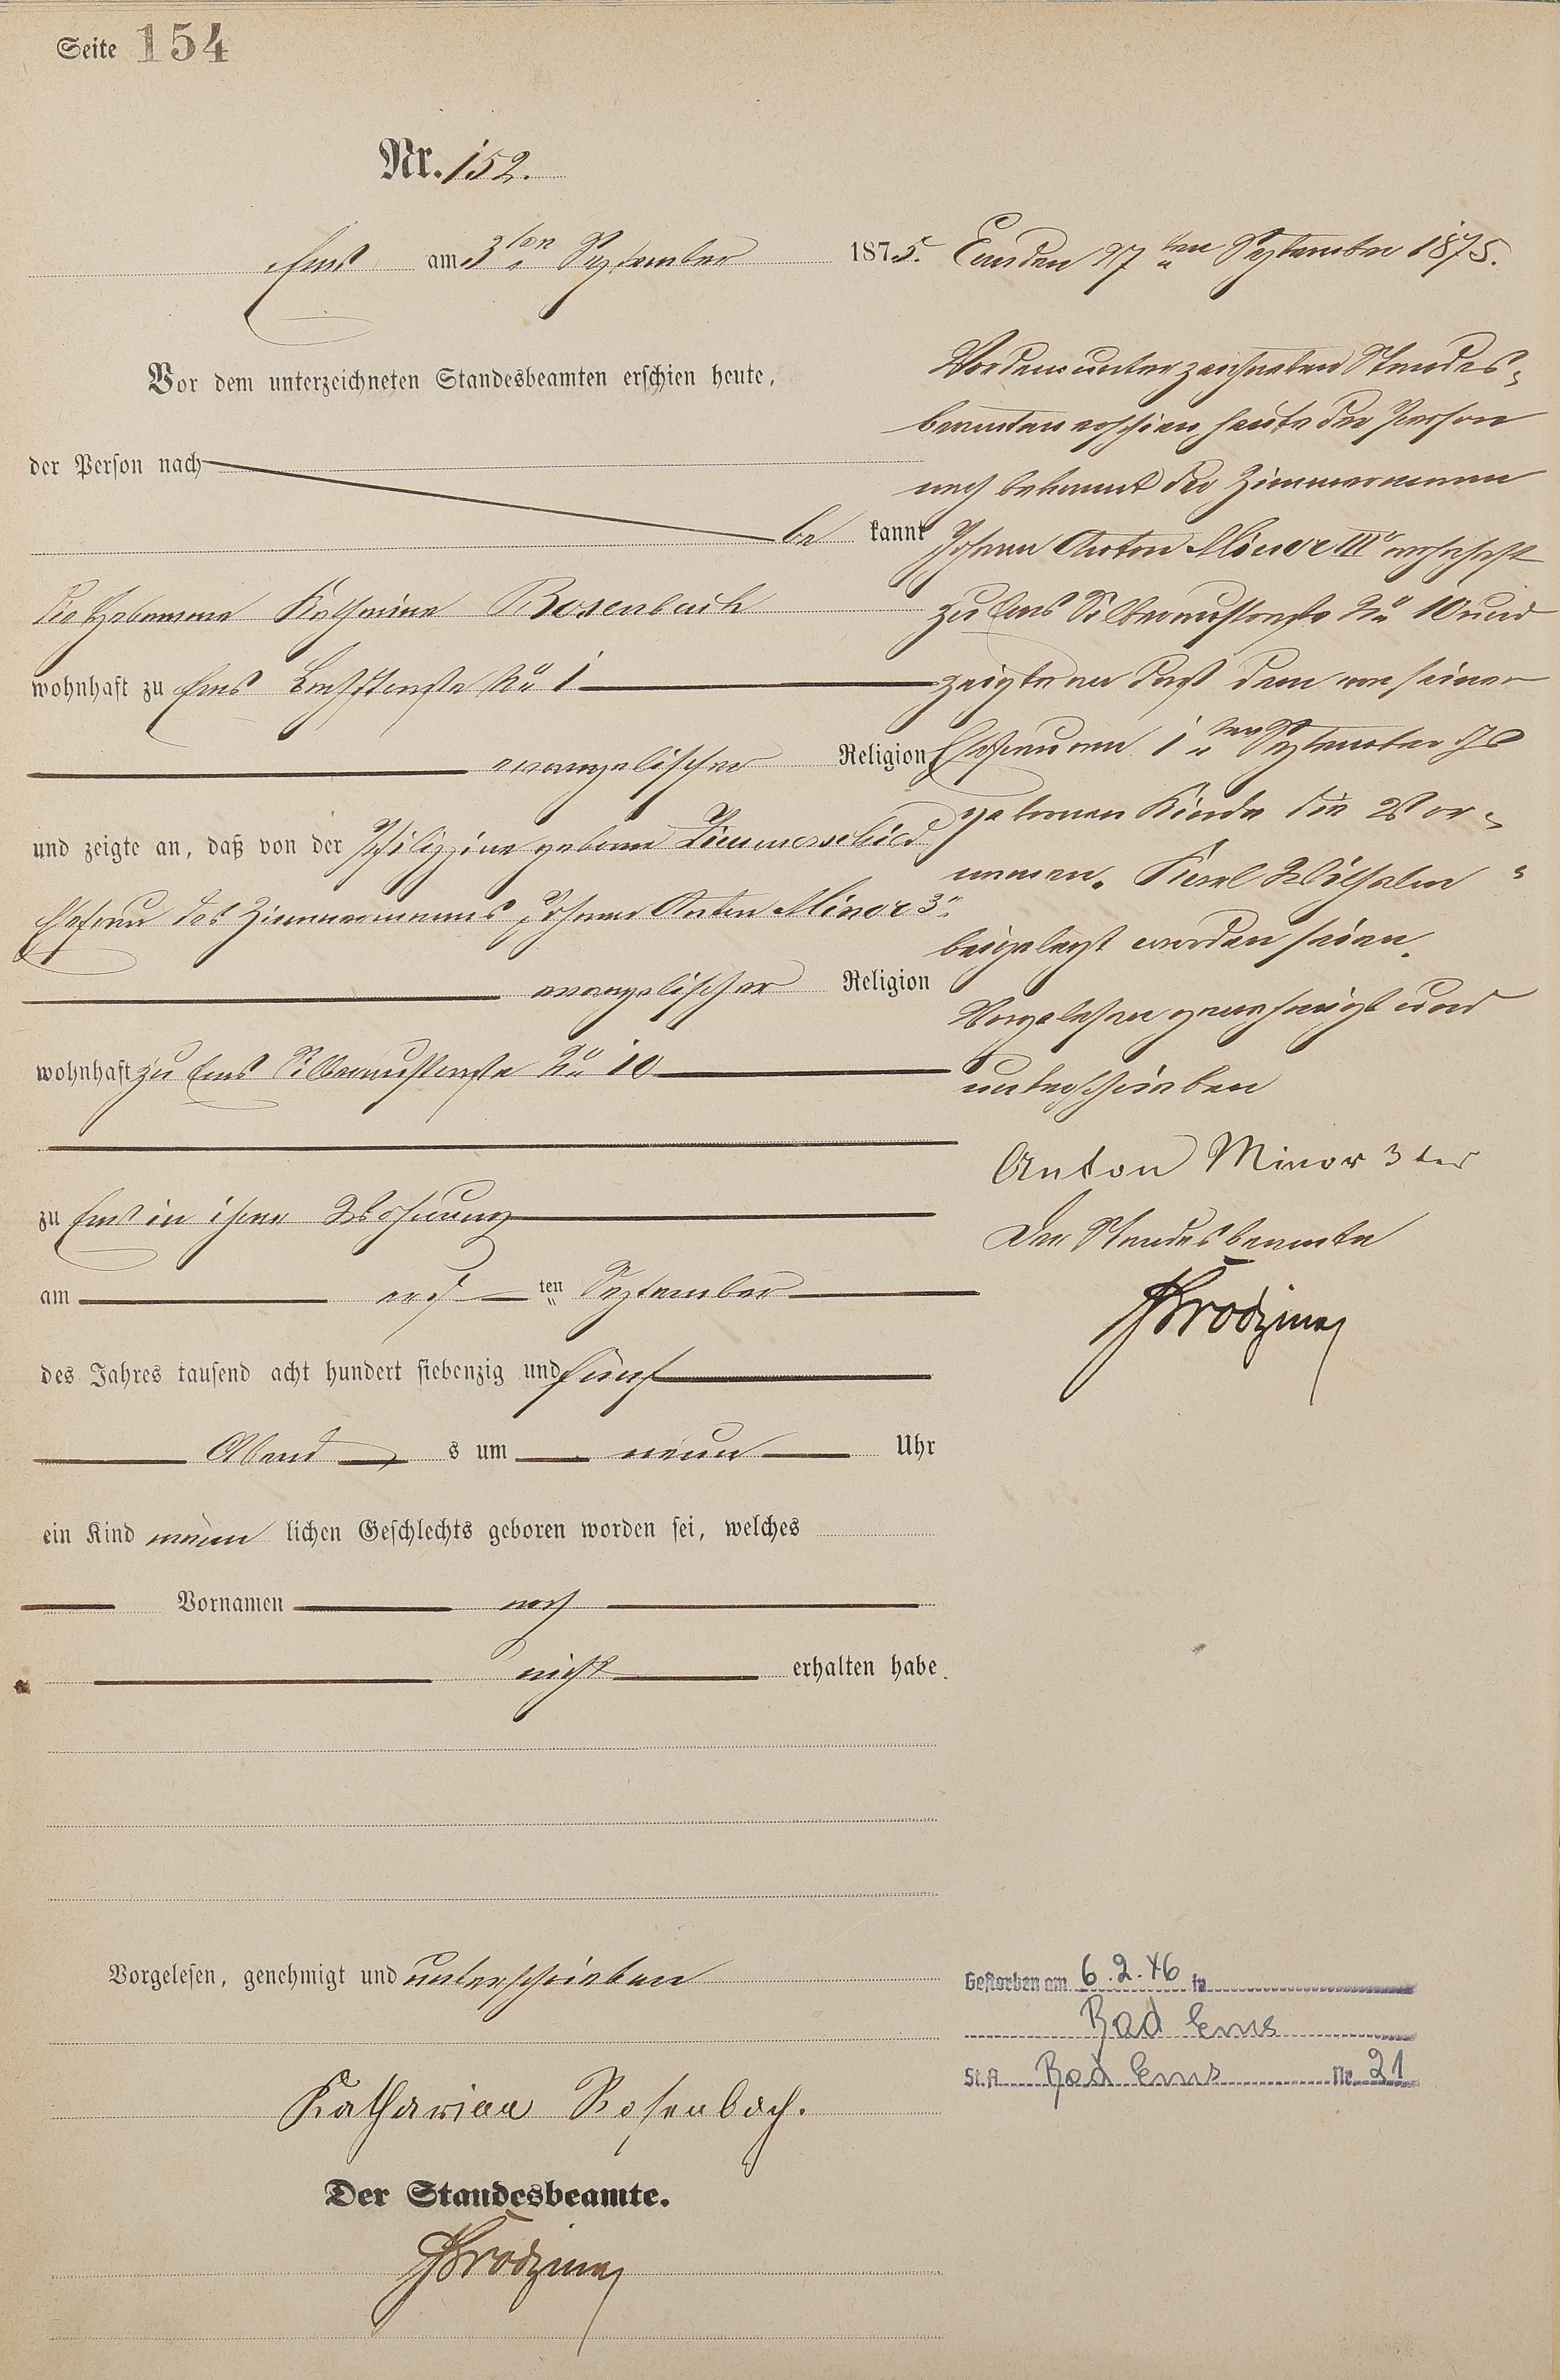 Seite 154
Nr. 152.
Ems am 3ten September 1875.
Vor dem unterzeichneten Standesbeamten erschien heute,
der Person nach
be kannt
die Hebamme Katharine Rosenbach
wohnhaft zu Ems No 1
evangelischer Religion
und zeigte an, daß von der Philippine geborne
Ehefrau des Zimmermanns Johann Anton Minor 3r
evangelischer Religion
wohnhaft zu Ems Silberaustraße No 10
zu Ems in ihrer Wohnung
am ers ten September
des Jahres tausend acht hundert siebenzig und fünf
Abend s um neun Uhr
ein Kind männ lichen Geschlechts geboren worden sei, welches
Vornamen noch
nicht erhalten habe.
Vorgelesen, genehmigt und unterschrieben
Katharina Rosenbach.
Der Standesbeamte.
Ems den 27ten September 1875.
Vor dem unterzeichneten Standes-
beamten erschien heute der Person
nach bekannt der Zimmermann
Johann Anton Minor IIIr wohnhaft
zu Ems Silberaustraße No 10 und
zeigte an daß dem von seiner
Ehefrau am 1ten September
gebornen Kinde die Vor-
namen. Karl Wilhelm
beigelegt worden seien.
Vorgelesen genehmigt und
unterschrieben
Anton Minor 3ter
Der Standesbeamte
Gestorben am 6.2.46 in
Bad Ems
St.A. Bad Ems Nr. 21